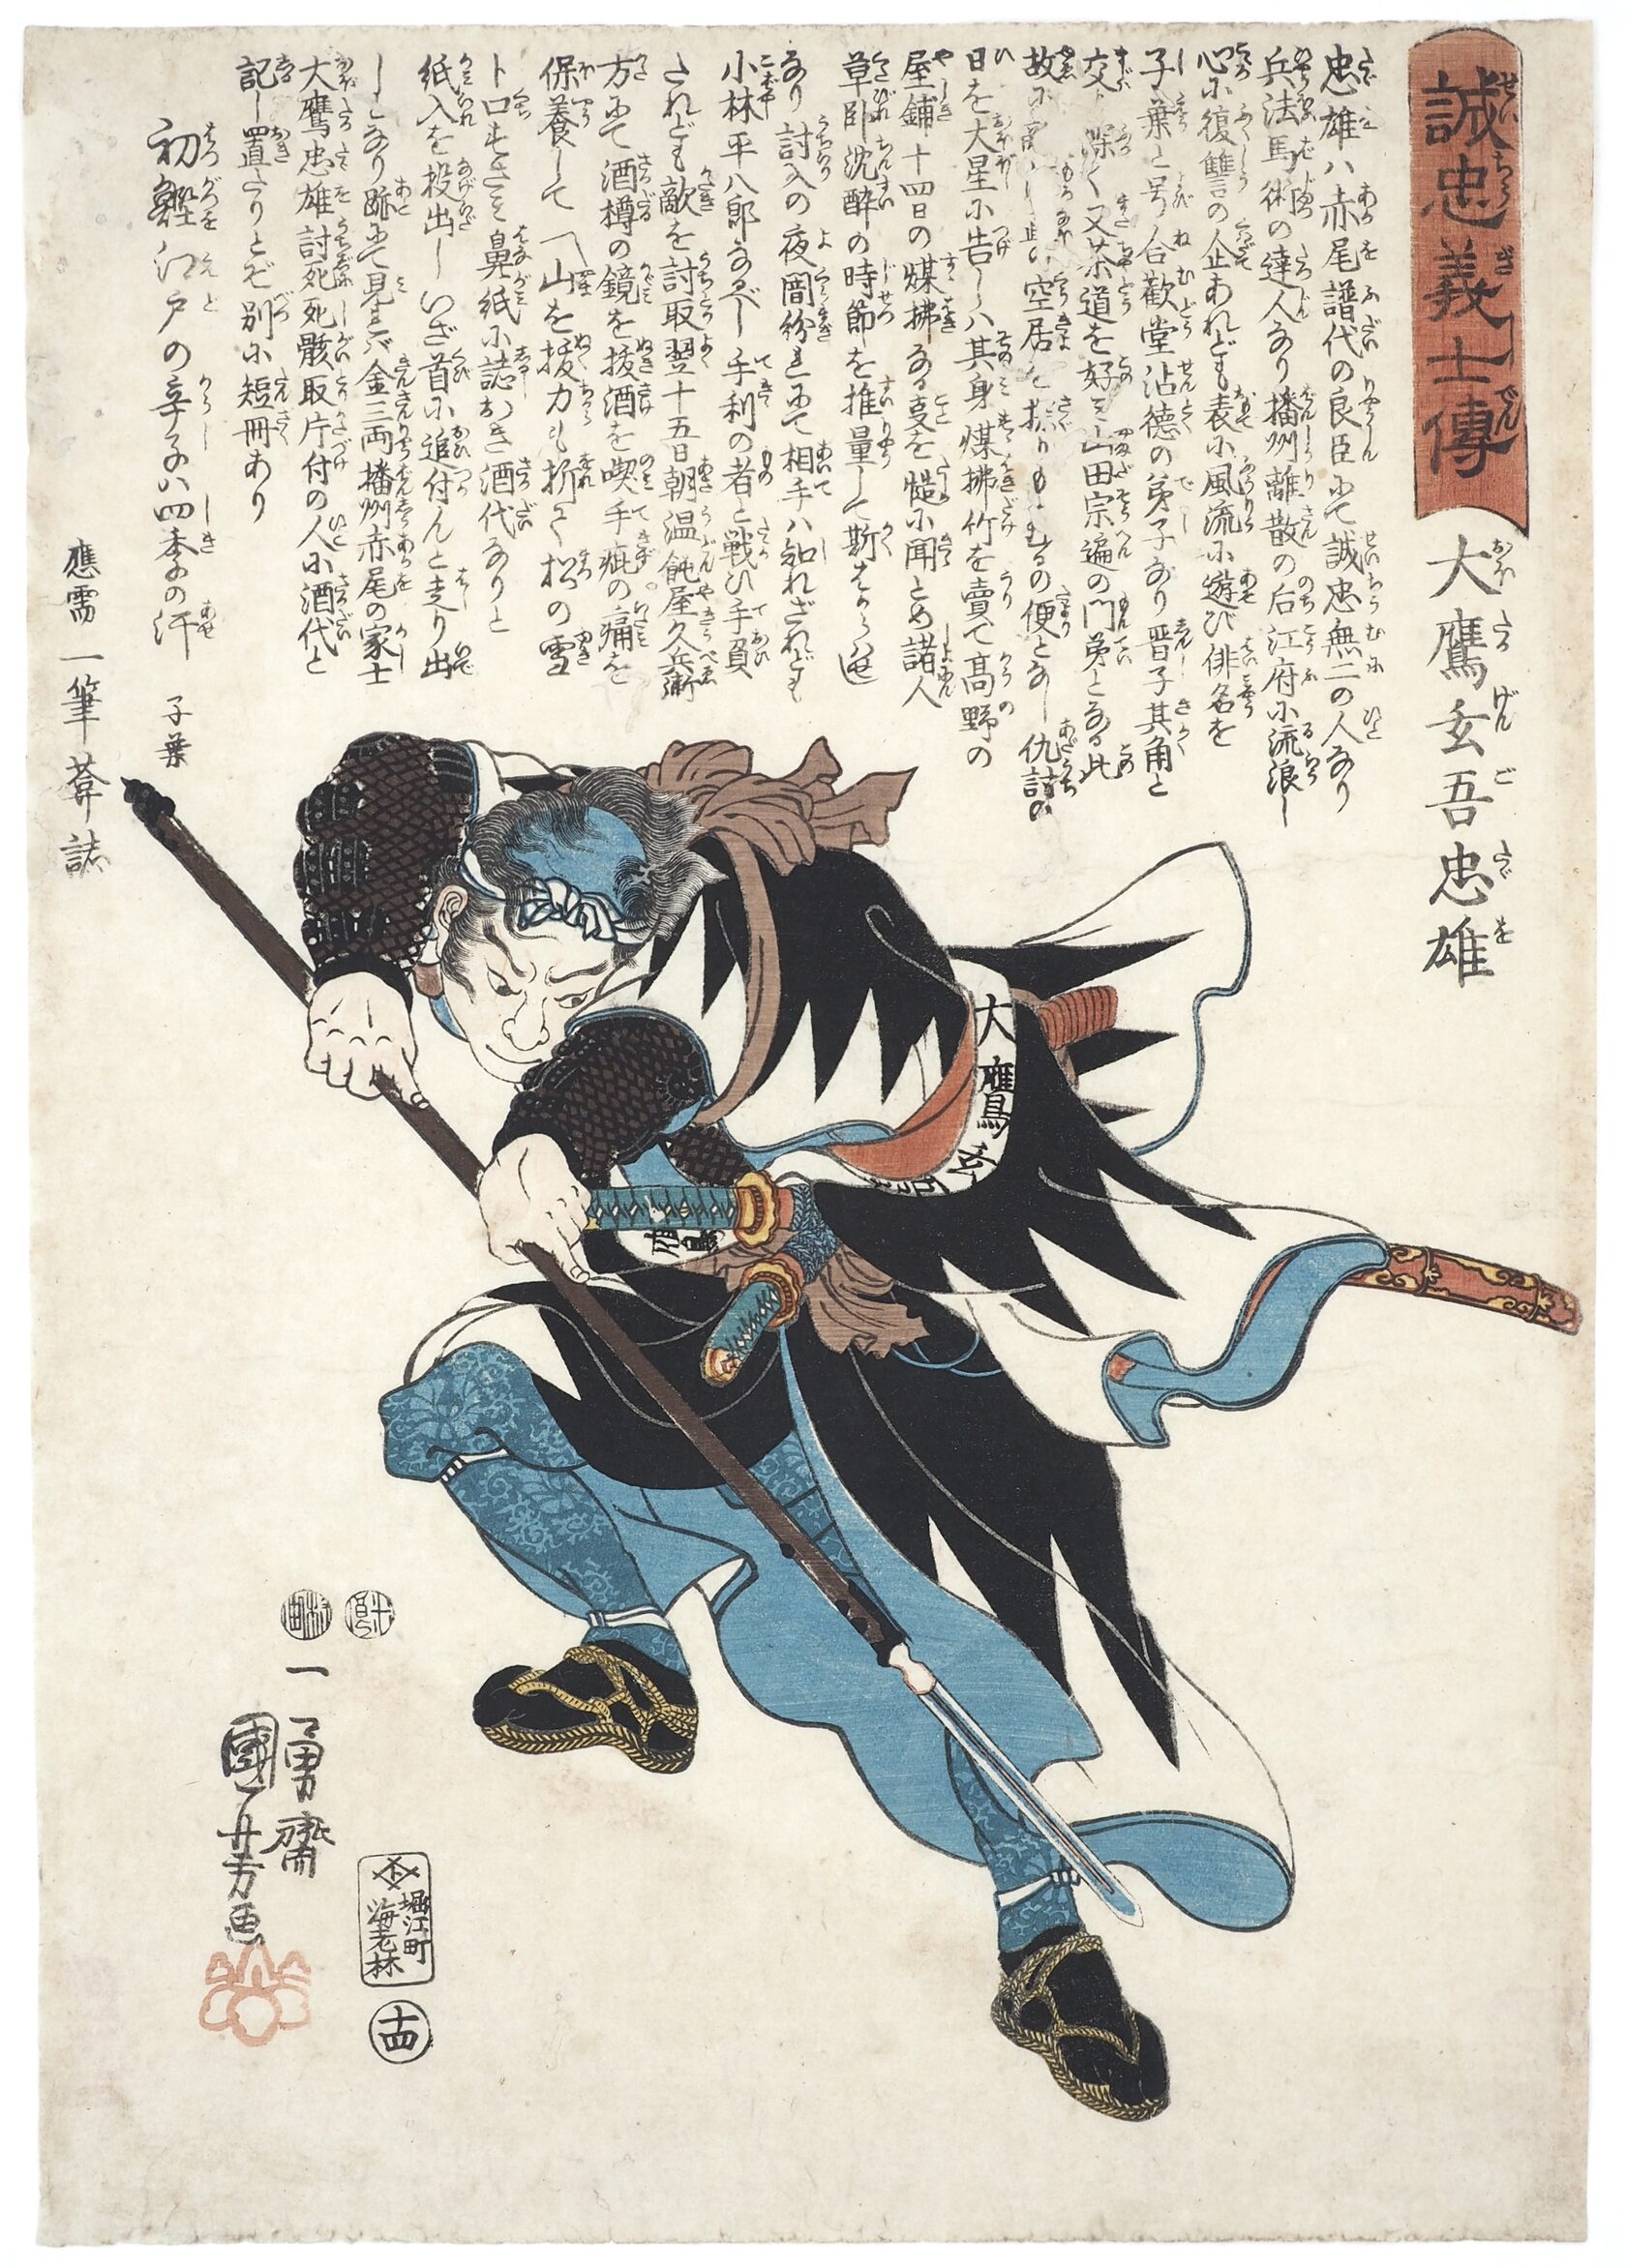 誠忠義士傳
大鷹玄吾忠雄
忠雄ハ赤尾譜代の良臣にて誠忠無二の人なり
兵法馬術の達人なり播州離散の后江府に流浪し
心に復讐の企あれども表に風流に遊び俳名を
子葉と号合歡堂沾徳の弟子なり晋子其角と
交り深く又茶道を好み山田宗遍の門弟となる此
空居を探りもとむるの便となし仇討の
日を大星に告しハ其身煤拂竹を賣て高野の
屋鋪十四日の煤拂なる叓を慥に聞とめ諸人
草卧沈酔の時節を推量して斯はからハせし
なり討入の夜闇紛れにて相手ハ知れざれども
小林平八郎なるべし手利の者と戦ひ手負
されども敵を討取翌十五日朝温飩屋久兵衛
方にて酒樽の鏡を抜酒を喫手疵の痛を
保養して
山を抜力も折て松の雪
ト口ずさミ鼻紙に誌おき酒代なりと
紙入を投出しいざ首に追付んと走り出
しとなり跡にて見れバ金三両播州赤尾の家士
大鷹忠雄討死死骸取片付の人に酒代と
記し置たりとぞ別に短冊あり
初鰹江戸の辛子ハ四季の汗
子葉
應需
一筆葊誌
大鷹玄吾
一勇齋
國芳画
堀江町
海老林
十四